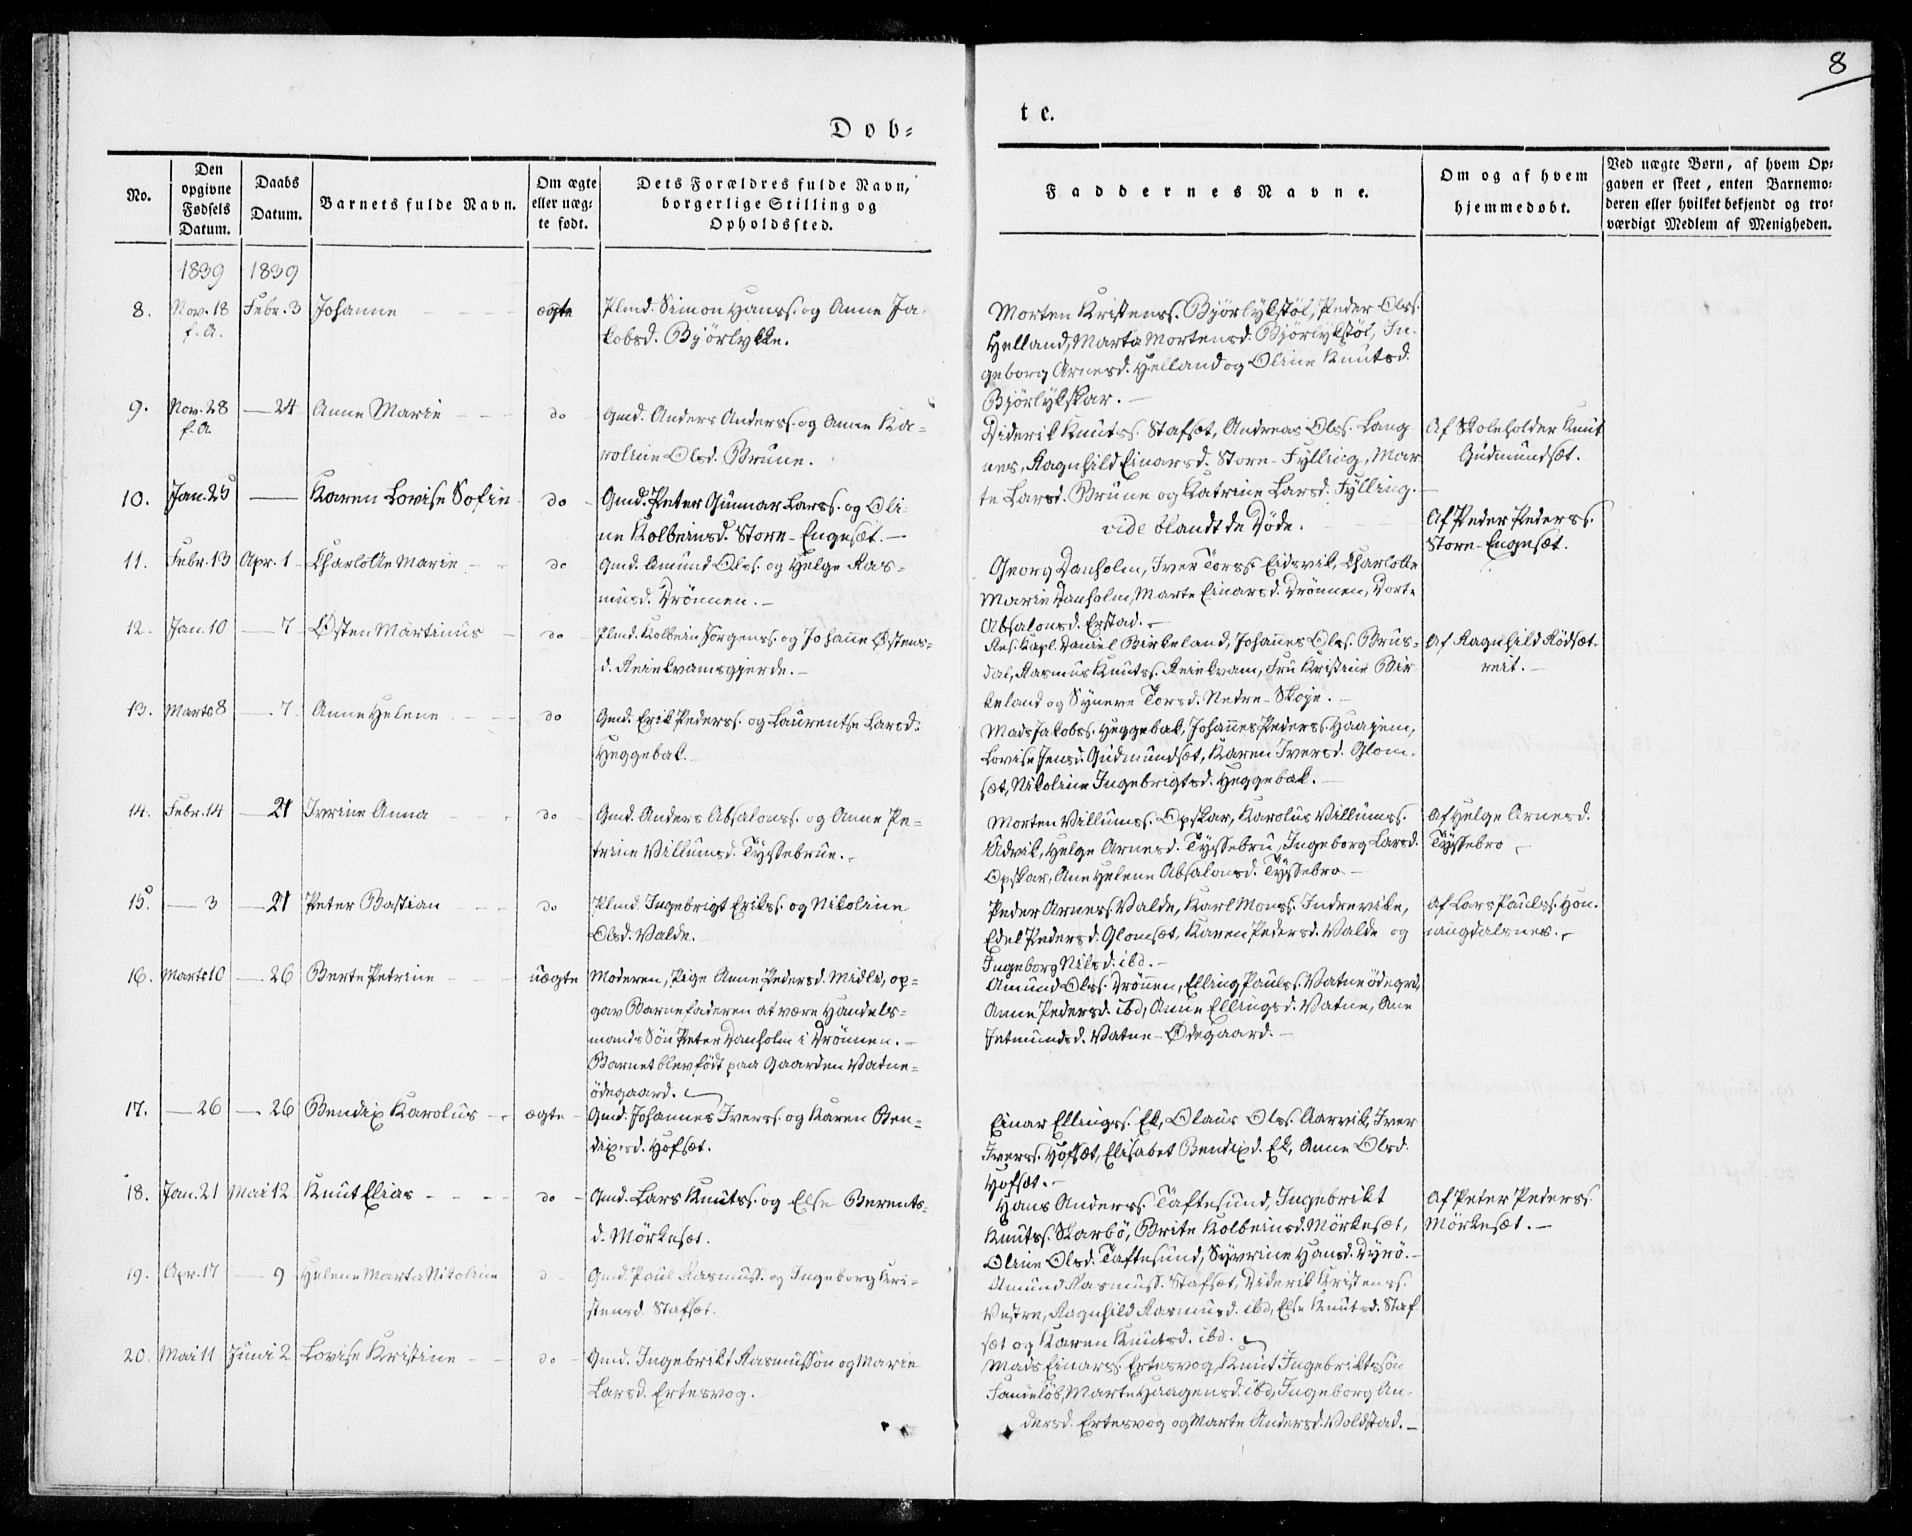 8
Døb=
te.
No.
Den opgivne Fødsels Datum.
Daabs Datum.
Barnets fulde Navn.
Om ægte eller uæg- te født.
Dets Forældres fulde Navn, borgerlige Stilling og Opholdssted.
Faddernes Navne.
Om og af hvem hjemmedøbt.
Ved uægte Børn, af hvem Op-
gaven er skeet, enten Barnemo-
deren eller hvilket bekjendt og tro-
værdigt Medlem af Menigheden.
1839 1839
8. Nov. 18 f.A. Febr. 3 Johanne ægte
Plmd. Simon Hanss. og Anne Ja-
kobsd. Bjørlykke.
Morten Kristenss. Bjørlykstøl, Peder Olss.
Helland, Marta Mortensd. Bjørlykstøl, In-
geborg Arnesd. Helland og Oline Knutsd.
Bjørlykskar.
9. Nov. 28 f.A. — 24 Anne Marie do
Gmd. Anders Anderss. og Anne Ka-
roline Olsd. Brune.
Diderik Knutss. Stafsæt, Andreas Olss. Lang
nes, Ragnhild Einarsd. Store-Fylling, Mar
te Larsd. Brune og Katrine Larsd. Fylling.
Af Skoleholder Knut
Gudmundsæt.
10. Jan. 25 — Karen Lovise Sofie do
Gmd. Peter Gunnar Larss. og Oli-
ne Kolbeinsd. Store-Engesæt.
vide blandt de Døde.
Af Peder Pederss.
Store-Engesæt.
11. Febr. 13 Apr. 1 Charlotte Marie do
Gmd. Amund Olss. og Helge Ras-
musd. Drönnen.
Georg Danholm, Iver Torss. Eidsvik, Charlotte
Marie Danholm, Marte Einarsd. Drönnen, Dorte
Absalonsd. Erstad.
12. Jan. 10 — 7 Østen Martinus do
Plmd. Kolbein Jörgenss. og Johanne Østens-
d. Reiekvamsgjerde.
Res. Kapl. Daniel Birkeland, Johannes Olss. Brus-
dal, Rasmus Knutss. Reiekvam, Fru Kristine Bir
keland og Syneve Torsd. Nedre-Skoje.
Af Ragnhild Rödsæt-
reit.
13. Marts 8 — 7 Anne Helene do
Gmd. Erik Pederss. og Laurentse Larsd.
Heggebak.
Mads Jakobss. Heggebak, Johannes Pederss. Haajem,
Lovise Jensd. Gudmundsæt, Karen Iversd. Glom-
sæt, Nikoline Ingebrigtsd. Heggebak.
14. Febr. 14 — 21 Iverine Anna do
Gmd. Anders Absalonss. og Anne Pe-
trine Villumsd. Tyssebrue.
Morten Villumss. Opskar, Karolus Villumss.
Eidsvik, Helge Arnesd. Tyssebru, Ingeborg Larsd.
Opskar, Ane Helene Absalonsd. Tyssebro
Af Helge Arnesd.
Tyssebro
15. — 3 — 21 Peter Bastian do
Plmd. Ingebrigt Erikss. og Nikoline
Olsd. Valde.
Peder Arness. Valde, Karl Monss. Indrevike,
Edel Pedersd. Glomsæt, Karen Pedersd. Valde og
Ingeborg Nilsd. ibd.
Af Lars Paulss. Hon-
ningdalsnes.
16. Marts 10 — 26 Berte Petrine uægte
Moderen, Pige Anne Pedersd. Midlid, op-
gav Barnefaderen at være Handels-
mands Søn Peter Danholm i Drönnen.
Barnet blev født paa Gaarden Vatne-
ødegaard.
Amund Olss. Drönnen, Elling Paulss. Vatneødegrd,
Anne Pedersd. ibd, Anne Ellingsd. Vatne, Ane
Jetmundsd. Vatne-Ødegaard.
17. — 26 — 26 Bendix Karolus ægte
Gmd. Johannes Iverss. og Karen Ben-
dixsd. Hofsæt.
Einar Ellingss. Ek, Olaus Olss. Aarvik, Iver
Iverss. Hofsæt, Elisabet Bendixd. Ek, Anne Olsd.
Hofsæt.
18. Jan. 21 Mai 12 Knut Elias do
Gmd. Lars Knutss. og Else Berents-
d. Mörkesæt.
Hans Anderss. Taftesund, Ingebrikt
Knutss. Skarbö, Brite Kolbeinsd. Mörkesæt,
Oline Olsd. Taftesund, Syvrine Hansd. Dyrö.
Af Peter Pederss.
Mörkesæt.
19. Apr. 17 — 9 Helene Marta Nikoline d
Gmd. Paul Rasmuss. og Ingeborg Kri-
stensd. Stafsæt.
Amund Rasmuss. Stafsæt, Diderik Kristenss.
Vestre, Ragnhild Rasmusd. ibd, Else Knutsd. Staf
sæt og Karen Knutsd. ibd.
20. Mai 11 Juni 2 Lovise Kristine do
Gmd. Ingebrikt Rasmussön og Marie
Larsd. Ertesvog.
Mads Einarss. Ertesvog, Knut Ingebriktssön
Sandelöb, Marte Haagensd. ibd, Ingeborg An-
dersd. Ertesvog og Marte Andersd. Voldstad.